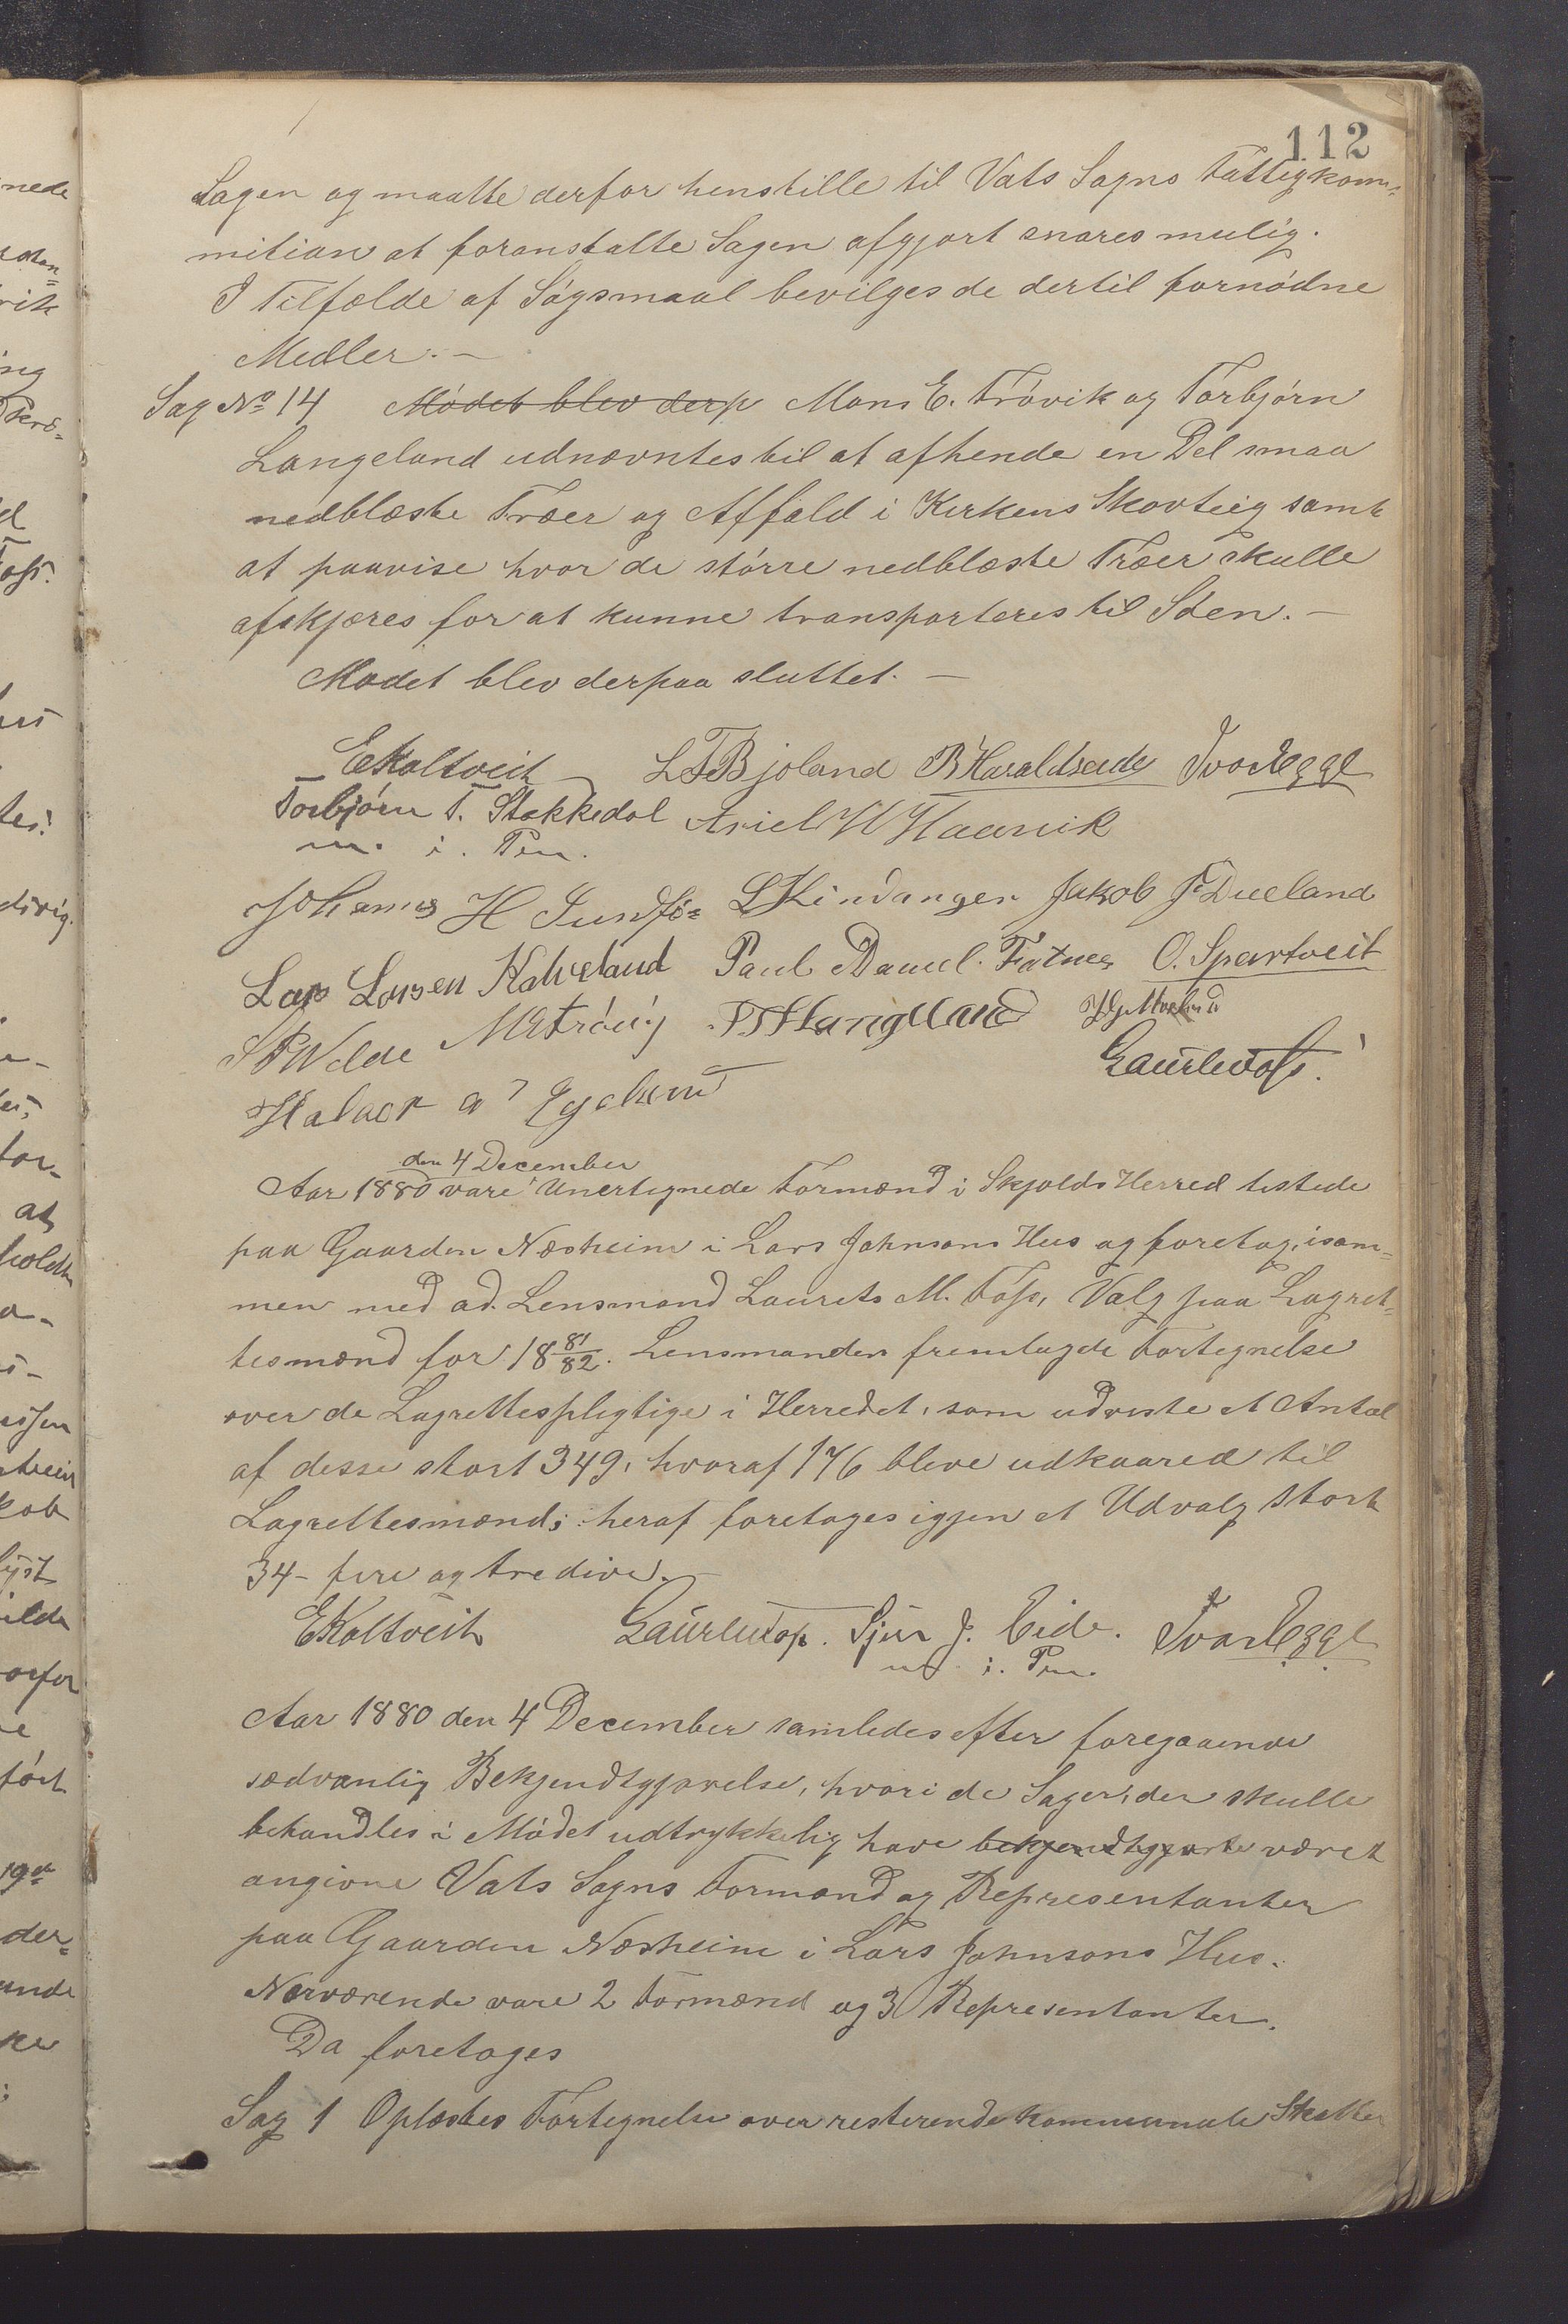 112
Sagen og maatte derfor henstille til Vats Sogns Fattigkom-
mission at foranstalte Sagen afgjort snares mulig.
I Tilfælde af Søgsmaal bevilges de dertil fornødne
Medler. —
Sag No 14 Mødet blev derp Mons E. Trövik og Torbjørn
Langeland udnævntes til at afhende en Del smaa
nedblæste Træer og Affald i Kirkens Skovteig samt
at paavise hvor de större nedblæste Træer skulle
afskjæres for at kunne transporteres til Söen. —
Mødet blev derpaa sluttet. —
E Koltveit L T Bjoland B Haraldseide Ivar Egge
Torbjörn T. Stakkedal Ariel W Haavik
m. i. Pen.
Johannes H Sundfö= L Kindangen Jakob F Dueland
Lars Larsen Kalveland Paul Daniel. Fatnes O. Spartveit
M E Trövig T T Langeland
Halvor
Laur. M. Foss.
den 4 December
Aar 1880 vare Unertegnede Formænd i Skjolds Herred tistede
paa Gaarden Næsheim i Lars Johnsons Hus og foretog, isam=
men med ad. Lensmand Laurits M. Foss, Valg paa Lagret=
tesmænd for 18 81/82. Lensmanden fremlagde Fortegnelse
over de Lagrettespligtige i Herredet, som udviste et Antal
af desse stort 349, hvoraf 176 bleve udkaared til
Lagrettesmænd; heraf foretages igjen et Udvalg stort
34 - fire og tredive. —
E Koltveit Laur. M. Foss. Sjur J. Eide. Ivar Egge
m. i. Pen.
Aar 1880 den 4 December samledes efter foregaaende
sædvanlig Bekjendtgjørelse, hvori de Sager, der skulle
behandles i Mødet udtrykkelig have bekjendtgjorte været
angivne Vats Sogns Formænd og Representanter
paa Gaarden Næsheim i Lars Johnsons Hus.
Nærværende vare 2 Formænd og 3 Representanter.
Da foretoges
Sag 1 Oplæstes Fortegnelse over resterende kommunale Skatter